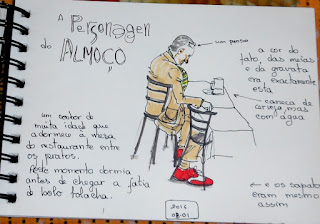 "A Personagem
do ALMOÇO"
um penso
a cor do
fato, das meias
e da gravata
era exactamente
esta
caneca de
cerveja mas
com água
um senhor de
muita idade que
adormeceu à mesa
do restaurante entre
os pratos.
Neste momento dormia
antes de chegar a fatia
de bolo bolacha.
← e os sapatos
eram mesmo
assim
2016
03.01